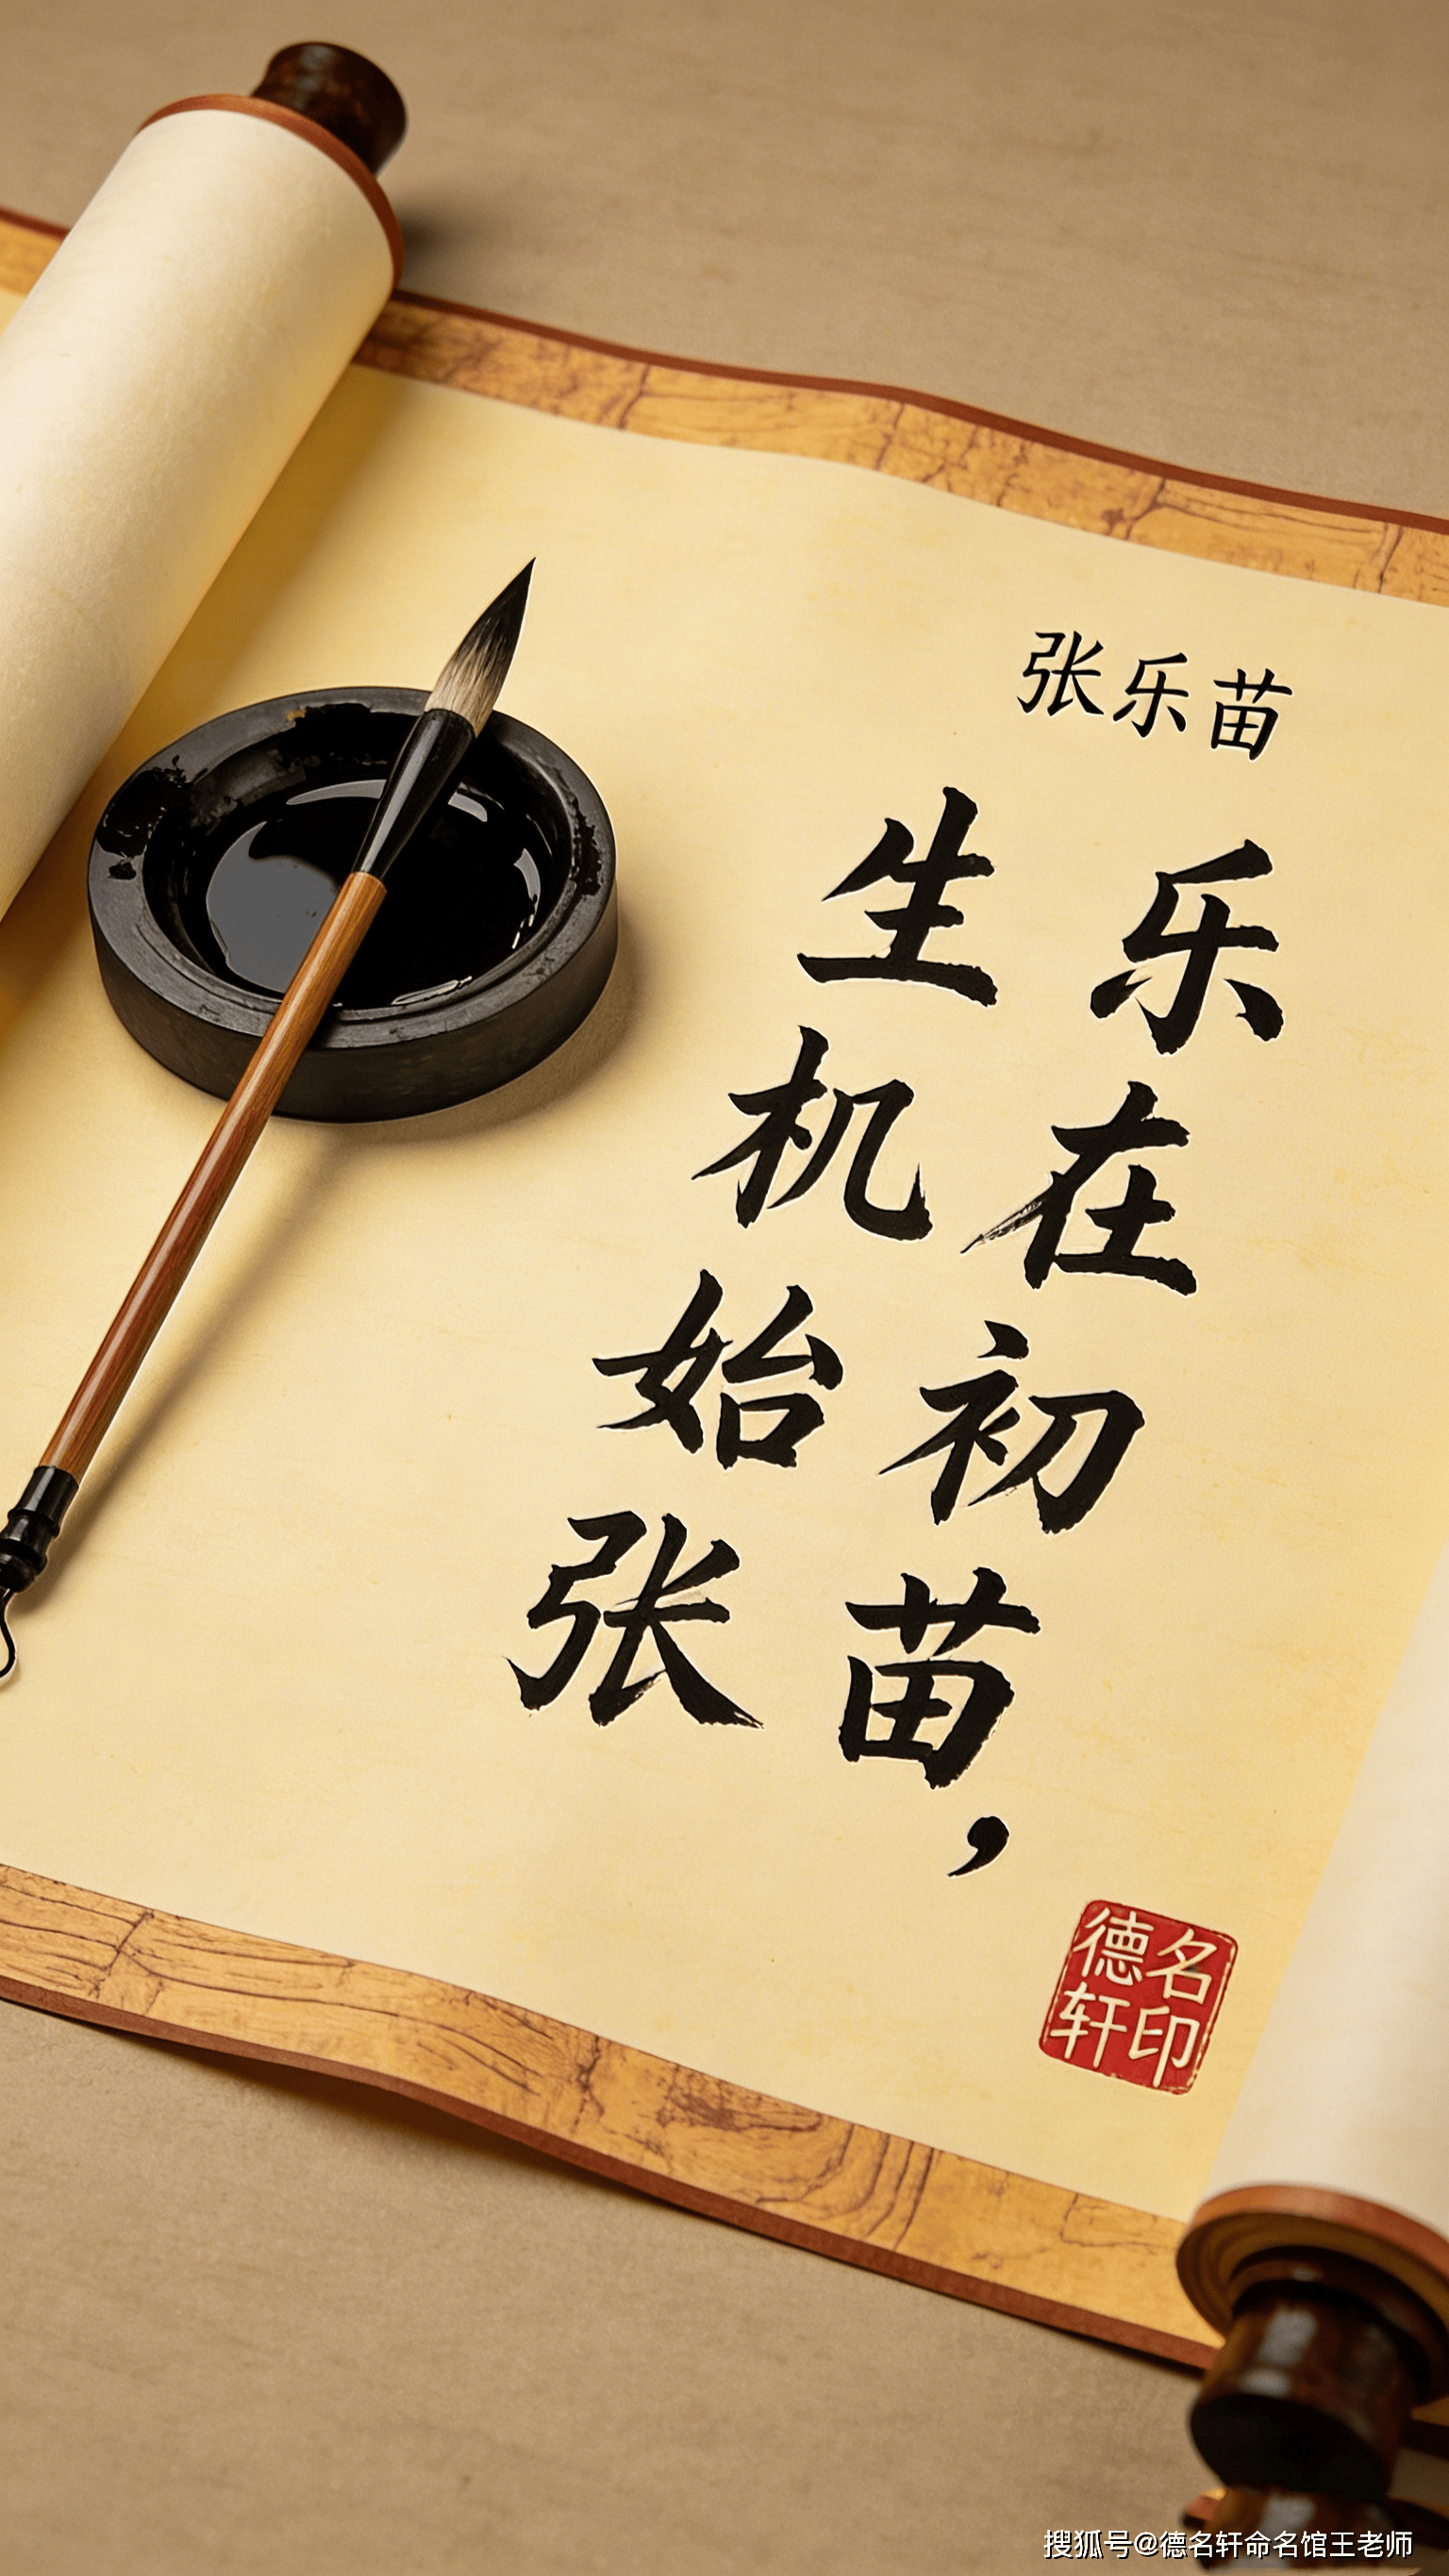 张乐苗
乐在初苗，
生机始张
德名
轩印
搜狐号@德名轩命名馆王老师